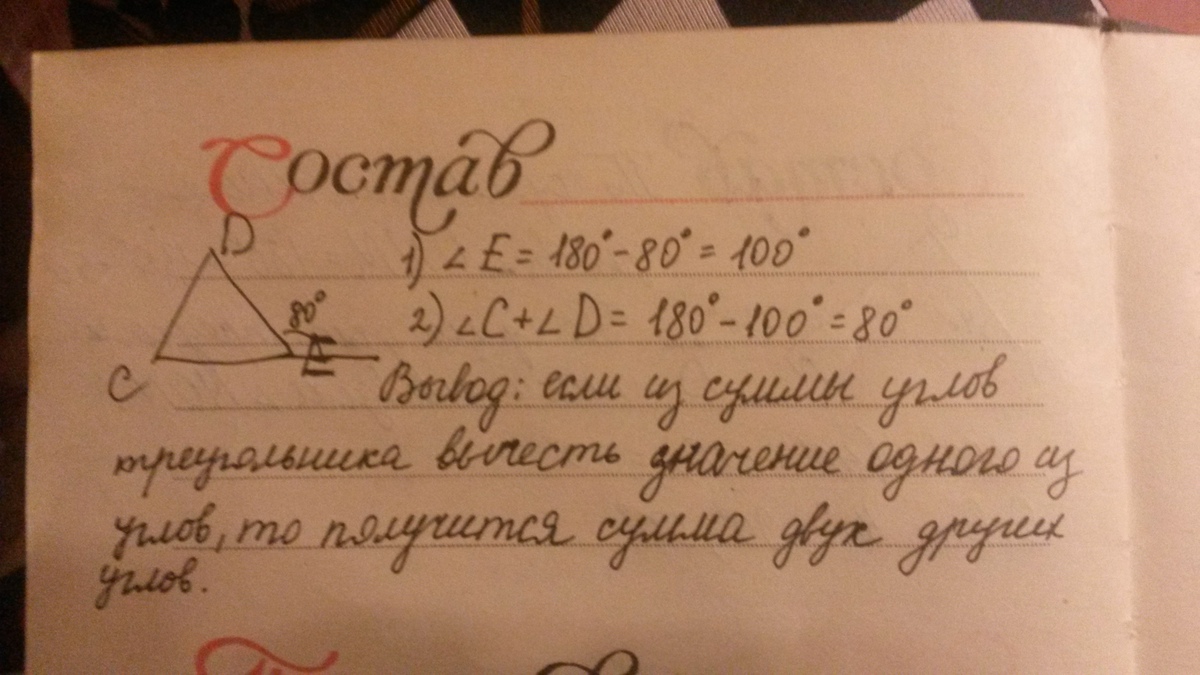 Состав
D
1) ∠E = 180° - 80° = 100°
80°
2) ∠C + ∠D = 180° - 100° = 80°
C
E
Вывод: если из суммы углов
треугольника вычесть значение одного из
углов, то получится сумма двух других
углов.